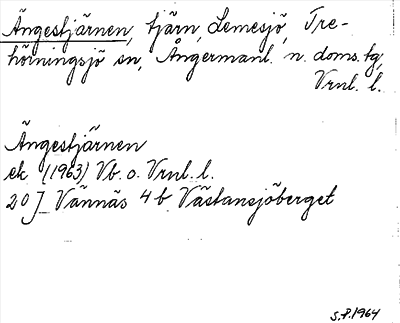 Ängestjärnen, tjärn, Lemesjö, Tre-
hörningsjö sn, Ångermanl. n. doms. tg,
Vrnl. l.
Ängestjärnen
ek (1963) Vb. o. Vrnl. l.
20J Vännäs 4b Västansjöberget
S.P. 1964